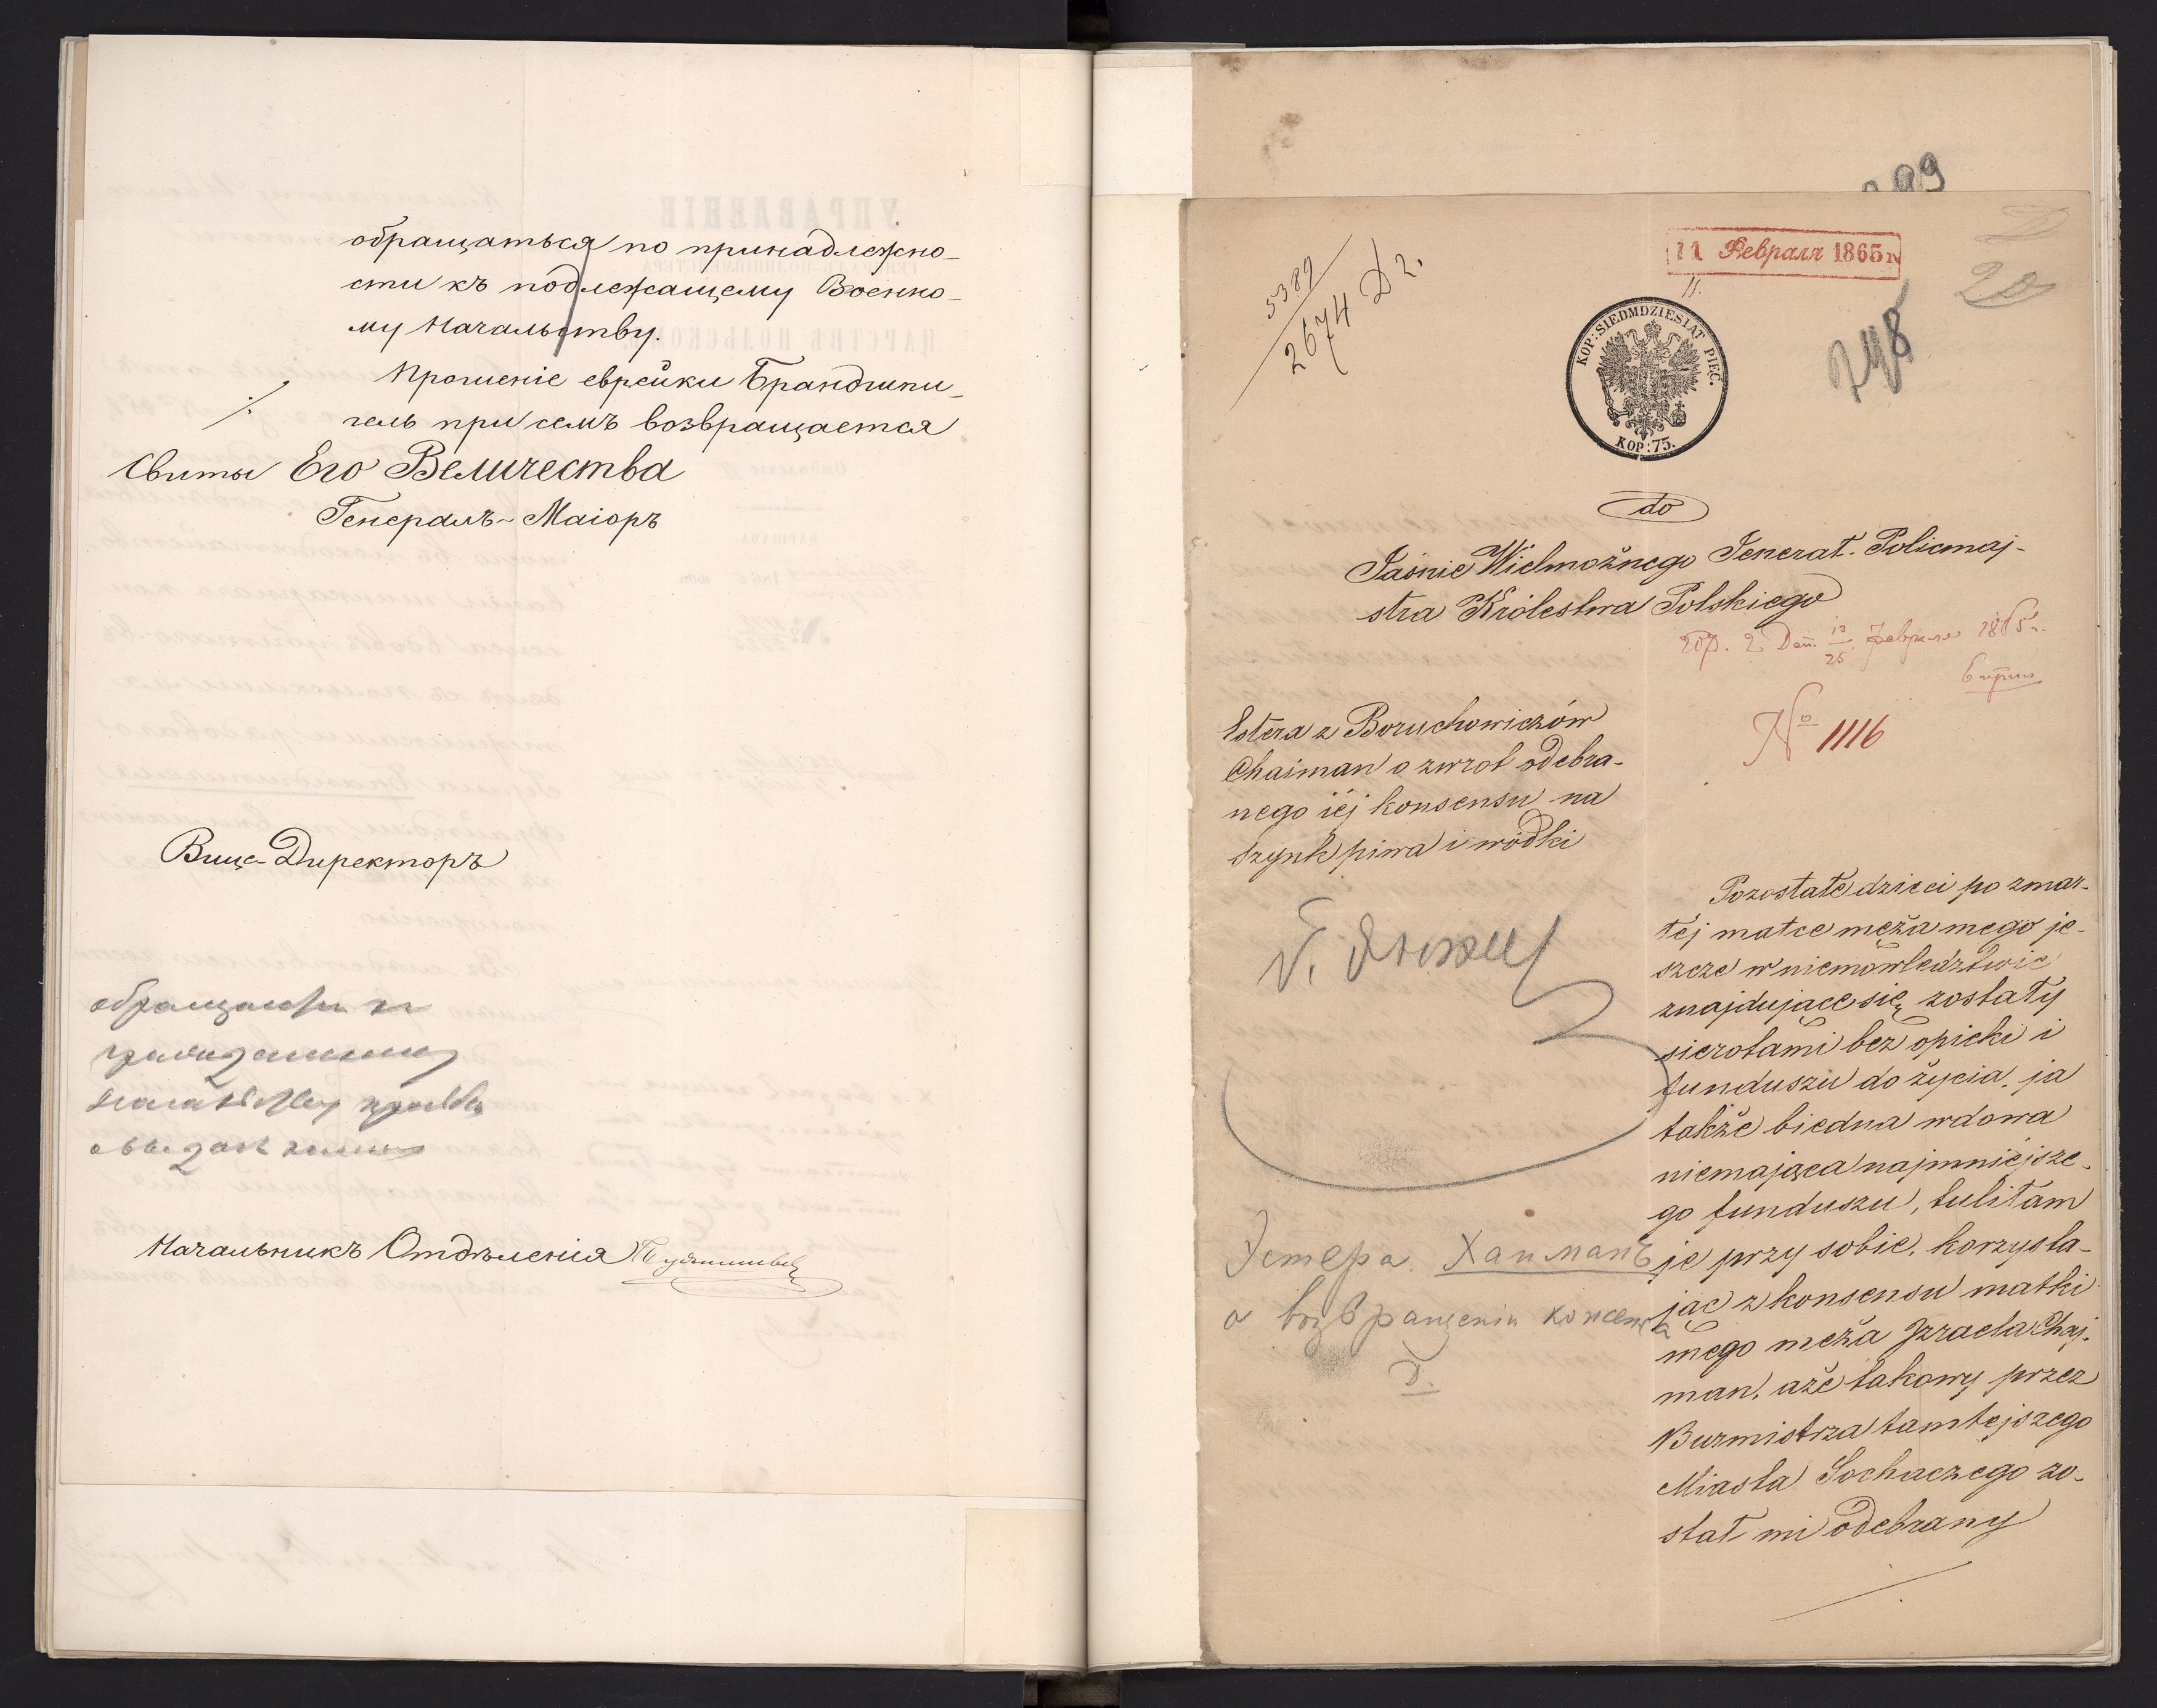 обращаться по принадлежно-
сти къ подлежащему Военно-
му Начальству.
Прошеніе еврейки Брандшпи-
гель при семъ возвращается
Свиты Его Величества
Генералъ-Маіоръ
Вице-Директоръ
Начальникъ Отдѣленія
99
20
11 Февраля 1865
11.
5389
2674 D 2.
748
KOP: SIEDMDZIESIĄT PIĘC.
KOP: 75.
do
Jaśnie Wielmożnego Jenerał-Policmaj-
stra Królestwa Polskiego
13/25 Февраля 1865 г.
No 1116
Estera z Boruchowiczów
Chaiman o zwrot odebra-
nego iéj konsensu na
szynk piwa i wódki
Pozostałe dzieci po zmar-
łéj matce męża mego je-
szcze w niemowlędztwie
znajdujące się zostały
sierotami bez opieki i
funduszu do życia, ja
także biedna wdowa
niemająca najmniéjsze-
go funduszu, tuliłam
je przy sobie, korzysta-
jąc z konsensu matki
mego męża Izraela Chaj-
man, aże takowy przez
Burmistrza tamtejszego
Miasta Sochaczego zo-
stał mi odebrany
Эстера Хайманъ
о возвращеніи консенса